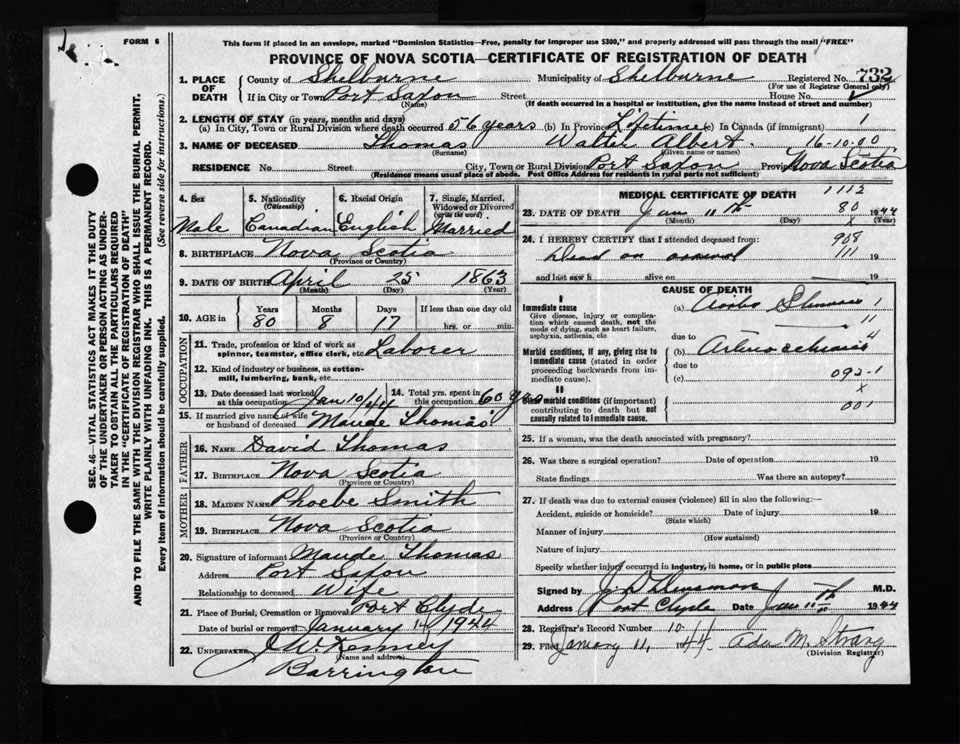 FORM 6
This form if placed in an envelope, marked "Dominion Statistics—Free, penalty for improper use $300," and properly addressed will pass through the mail "FREE"
PROVINCE OF NOVA SCOTIA—CERTIFICATE OF REGISTRATION OF DEATH
1. PLACE OF DEATH County of Shelburne Municipality of Shelburne Registered No. 732
(For use of Registrar General only)
If in City or Town Port Saxon Street House No.
(Name) (If death occurred in a hospital or institution, give the name instead of street and number)
2. LENGTH OF STAY (in years, months and days)
(a) In City, Town or Rural Division where death occurred 56 years (b) In Province Lifetime (c) In Canada (if immigrant) 1
3. NAME OF DECEASED Thomas Walter Albert. 16-10.00
(Surname) (Given name or names)
RESIDENCE No. Street City, Town or Rural Division Port Saxon Province Nova Scotia
(Residence means usual place of abode. Post Office Address for residents in rural parts not sufficient)
4. Sex 5. Nationality (Citizenship) 6. Racial Origin 7. Single, Married, Widowed or Divorced (write the word)
Male Canadian English Married
8. BIRTHPLACE Nova Scotia
(Province or Country)
9. DATE OF BIRTH April 25 1863
(Month) (Day) (Year)
10. AGE in Years Months Days If less than one day old
80 8 17 hrs. or min.
OCCUPATION
11. Trade, profession or kind of work as spinner, teamster, office clerk, etc. Laborer
12. Kind of industry or business, as cotton-mill, lumbering, bank, etc.
13. Date deceased last worked at this occupation Jan 10/44 14. Total yrs. spent in this occupation 60 yrs
15. If married give name of wife or husband of deceased Maude Thomas
FATHER
16. NAME David Thomas
17. BIRTHPLACE Nova Scotia
(Province or Country)
MOTHER
18. MAIDEN NAME Phoebe Smith
19. BIRTHPLACE Nova Scotia
(Province or Country)
20. Signature of informant Maude Thomas
Address Port Saxon
Relationship to deceased Wife
21. Place of Burial, Cremation or Removal Port Clyde
Date of burial or removal January 14 1944
22. UNDERTAKER
(Name and address)
Barrington
MEDICAL CERTIFICATE OF DEATH 1112
23. DATE OF DEATH 11th 80 1944
(Month) (Day) x
24. I HEREBY CERTIFY that I attended deceased from: 908
Dead on arrival 111
and last saw h alive on 19
CAUSE OF DEATH
I
Immediate cause (a) 1
Give disease, injury or complication which caused death, not the mode of dying, such as heart failure, asphyxia, asthenia, etc 11
due to 4
Morbid conditions, if any, giving rise to immediate cause (stated in order proceeding backwards from immediate cause). (b)
due to
(c) 092-1
II x
Other morbid conditions (if important) contributing to death but not causally related to immediate cause. 001
25. If a woman, was the death associated with pregnancy?
26. Was there a surgical operation? Date of operation 19
State findings Was there an autopsy?
27. If death was due to external causes (violence) fill in also the following:—
Accident, suicide or homicide? Date of injury 19
(State which)
Manner of injury
(How sustained)
Nature of injury
Specify whether injury occurred in industry, in home, or in public place
Signed by M.D.
Address Port Clyde Date 1944
28. Registrar's Record Number 10
29. Filed January 11, 1944 Ada M. Strang
(Division Registrar)
SEC. 46—VITAL STATISTICS ACT MAKES IT THE DUTY
OF THE UNDERTAKER OR PERSON ACTING AS UNDER-
TAKER TO OBTAIN ALL THE PARTICULARS REQUIRED
IN THE "CERTIFICATE OF REGISTRATION OF DEATH"
AND TO FILE THE SAME WITH THE DIVISION REGISTRAR WHO SHALL ISSUE THE BURIAL PERMIT.
WRITE PLAINLY WITH UNFADING INK. THIS IS A PERMANENT RECORD.
Every item of information should be carefully supplied. (See reverse side for instructions.)